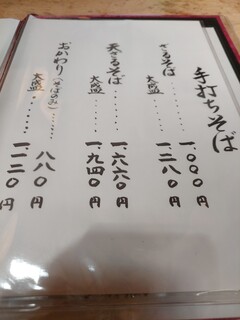 手打ちそば
ざるそば・・・・・一、〇〇〇円
大盛・・・・・一、二八〇円
天ざるそば・・・・・一、六六〇円
大盛・・・・・一、九四〇円
おかわり(そばのみ)・・・・・八八〇円
大盛・・・・・一、一二〇円